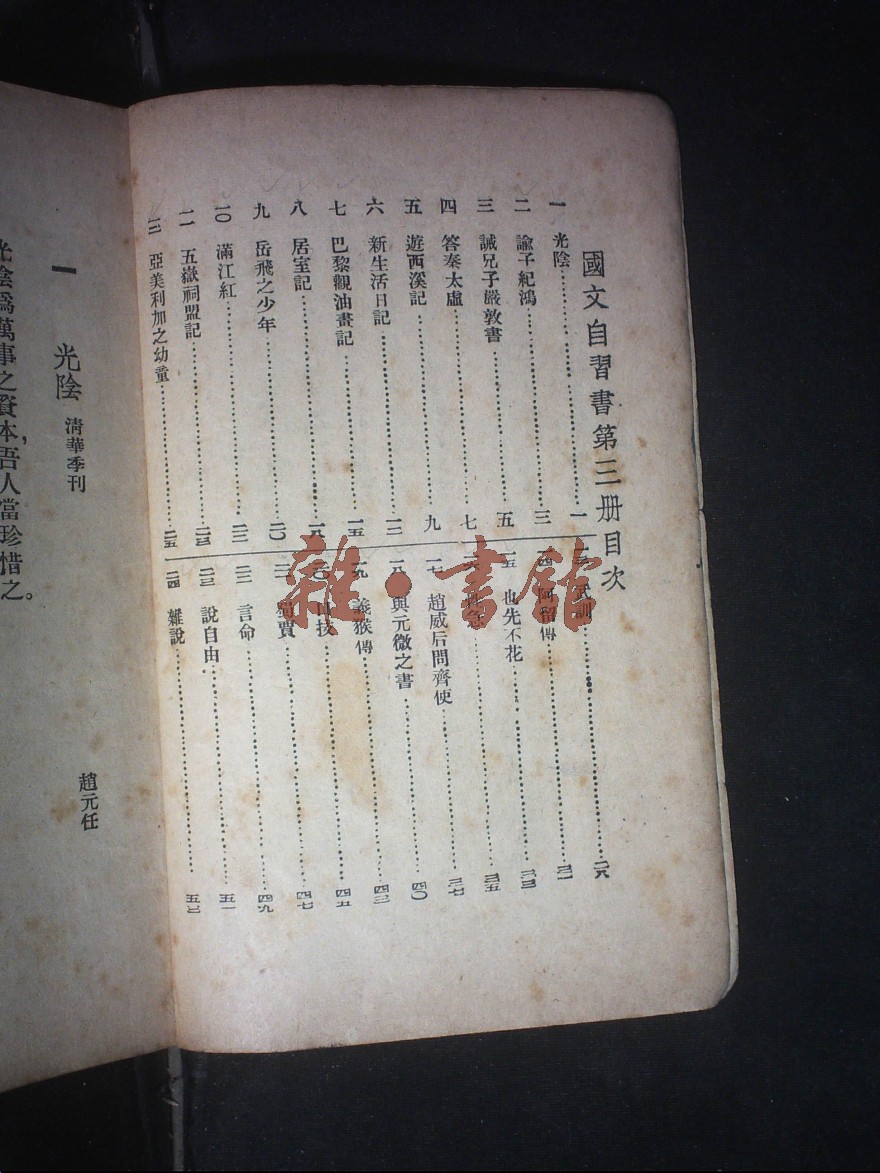 國文自習書第三册目次
一 光陰 一
二 諭子紀鴻 三
三 誡兄子嚴敦書 五
四 答秦太虛 七
五 遊西溪記 九
六 新生活日記 一二
七 巴黎觀油畫記 一五
八 居室記 一八
九 岳飛之少年 二〇
一〇 滿江紅
一一 五嶽祠盟記
一二 亞美利加之幼童 二五
一三 武訓 二八
一四 阿留傳 三一
一五 也先不花 三三
一六 三五
一七 趙威后問齊使 三七
一八 與元微之書 四〇
一九 義猴傳 四三
二〇 口技 四五
二一 蜀賈 四七
二二 言命 四九
二三 說自由 五一
二四 雜說 五三
雜·書館
一 光陰 清華季刊 趙元任
光陰爲萬事之資本,吾人當珍惜之。